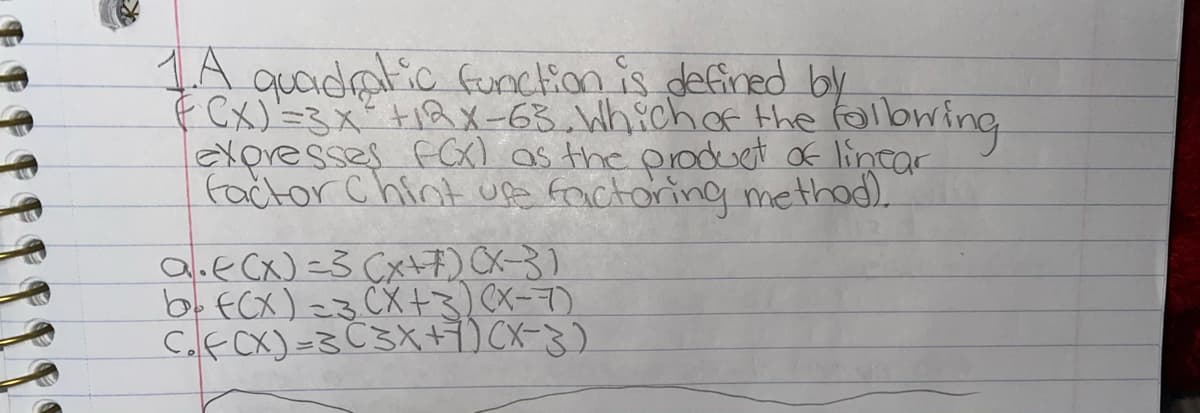 1. A quadratic function is defined by
f(x)=3x²+12x-63. Which of the following
expresses f(x) as the product of linear
factor (hint use factoring method).
a. f(x)=3(x+7)(x-3)
b. f(x)=3(x+3)(x-7)
c. f(x)=3(3x+7)(x-3)